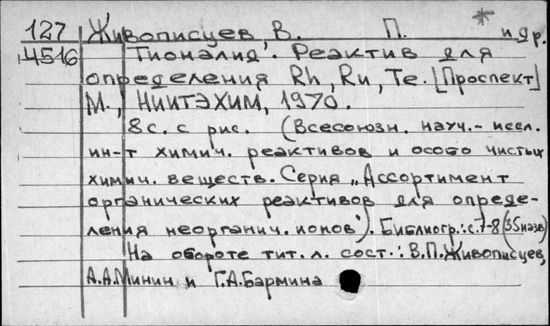 127 Живописцев, В. П. * и др.
4516 Тионалид. Реактив для
определения Rh, Ru, Te. [Проспект]
М., НИИТЭХИМ, 1970.
8 с. с рис. (Всесоюзн. науч.- иссл.
ин-т химич. реактивов и особо чистых
химич. веществ. Серия „Ассортимент
органических реактивов для опреде-
ления неорганич. ионов"). Библиогр.: с.7-8 (35 назв)
На обороте тит. л. сост.: В.П. Живописцев,
А.А. Минин и Г.А. Бармина